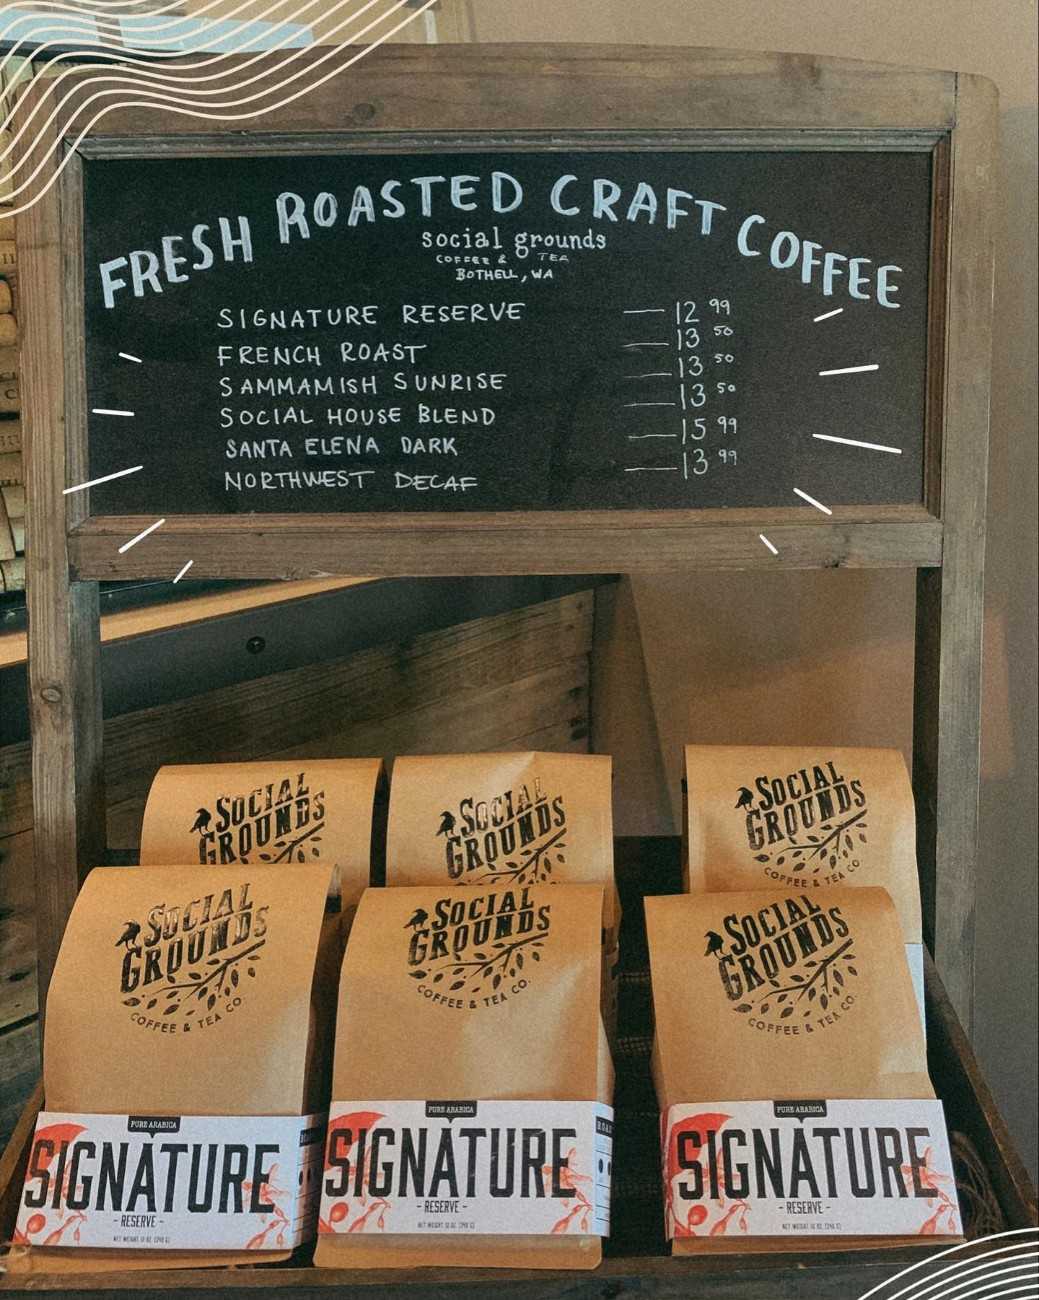 FRESH ROASTED CRAFT COFFEE
social grounds
COFFEE & TEA
BOTHELL, WA
SIGNATURE RESERVE — 12 99
FRENCH ROAST — 13 50
SAMMAMISH SUNRISE — 13 50
SOCIAL HOUSE BLEND — 13 50
SANTA ELENA DARK — 15 99
NORTHWEST DECAF — 13 99
SOCIAL
GROUNDS
SOCIAL
GROUNDS
SOCIAL
GROUNDS
COFFEE & TEA CO
SOCIAL
GROUNDS
COFFEE & TEA CO.
SOCIAL
GROUNDS
COFFEE & TEA CO.
SOCIAL
GROUNDS
COFFEE & TEA CO.
PURE ARABICA
SIGNATURE
- RESERVE -
NET WEIGHT 12 OZ. (340 G)
PURE ARABICA
SIGNATURE
- RESERVE -
NET WEIGHT 12 OZ. (340 G)
PURE ARABICA
SIGNATURE
- RESERVE -
NET WEIGHT 12 OZ. (340 G)